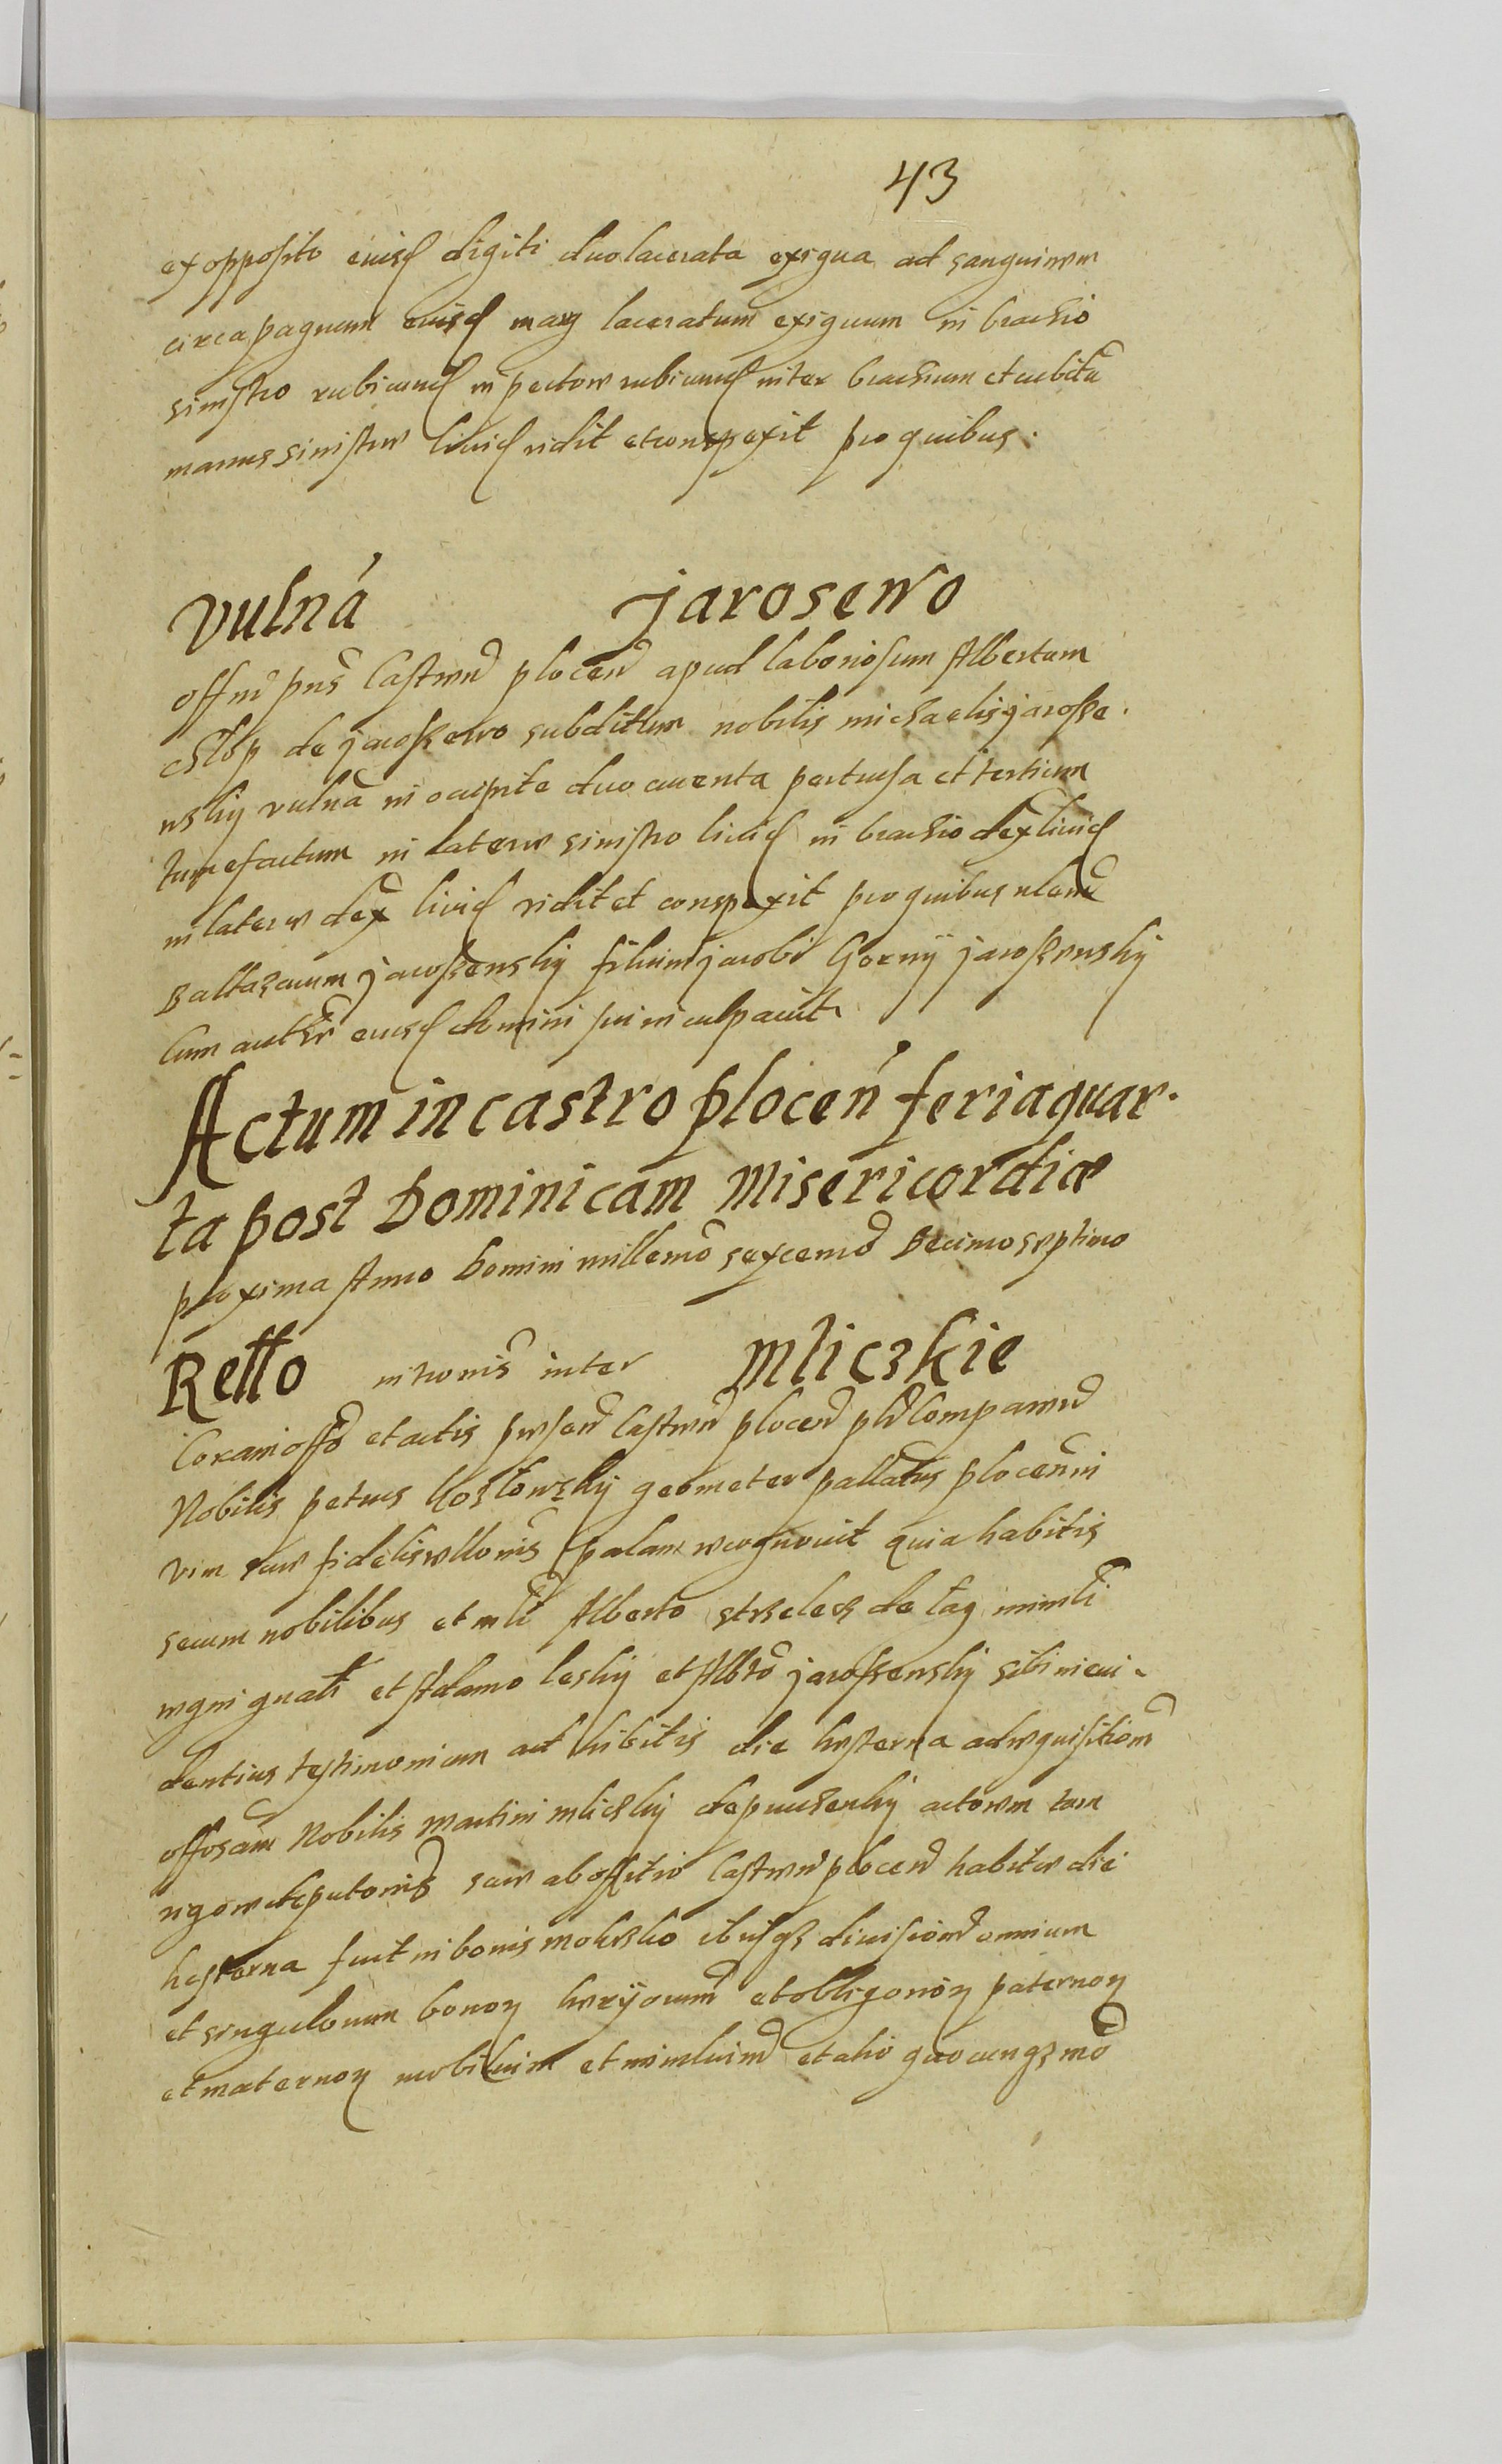 43
ex opposito eiusd digiti duo lacerata exigua ad sanguinem
circa pagnum eiusd man laceratum exiguum in brachio
sinistro rubicund in pectore rubicund inter brachium et cubitū
manus sinistre livid vidit et conspexit pro quibus.
Vulna Jarosewo
Offm pns Castren plocen apud laboriosum Albertum
de jaroszewo subditum nobilis michaelis jarosze.
wskij vulna in occipite duo cruenta pertusa et tertium
tumefactum in latere sinistro livid in brachio dex livid
in latere dex livid vidit et conspexit pro quibus
Baltazarum jaroszewskij filium jacobi Gornij jaroszewskij
Cum eiusd domini sui inculpavit
Actum in castro plocen feria quar.
ta post Dominicam Misericordiæ
proxima Anno Domini millemo sexcenmo Decimo septimo
Rello intromis inter Mliczkie
Coram offo et actis presen Castren plocen pln Comparen
Nobilis petrus Kozlowskij geometer pallatus plocen in
vim sue fidelis rellonis palam recognovit quia habitis
secum nobilibus et Alberto strzelecz de
et Adamo leskij et Albto jaroszewskij sibi in evi-
dentius testimonium ad hibitis die hesterna ad requisitiom
offosam Nobilis Martini mliczkij de actorem tam
vigore deputonis sue ab officio Castren plocen habite die
hesterna fuit in bonis mokrzko ibiq divisiom omnium
et singulorum bonor et obligonor paternor
et maternor mobilium et et alio quocunq mo